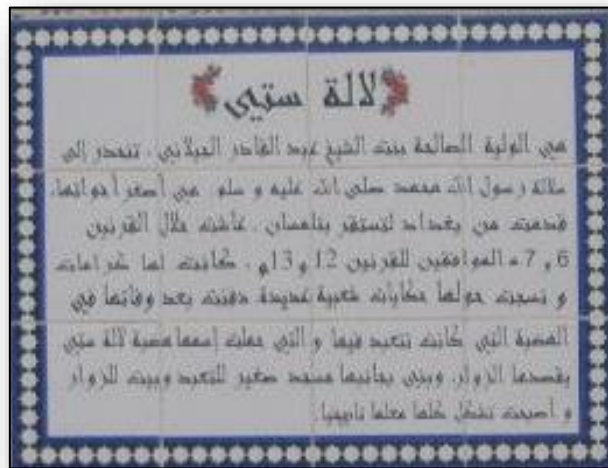 لالة ستي
هي الولية الصالحة بنت الشيخ عبد القادر الجيلاني . تنحدر إلى
سلالة رسول الله محمد صلى الله عليه و سلم هي أصغر أخواتها.
قدمت من بغداد لتستقر بتلمسان . عاشت خلال القرنين
6 و 7 ه الموافقين للقرنين 12 و 13 م . كانت لها كرامات
و نسجت حولها حكايات شعبية عديدة. دفنت بعد وفاتها في
الهضبة التي كانت تتعبد فيها و التي حملت إسمها هضبة لالة ستي
يقصدها الزوار. وبني بجانبها مسجد صغير للتعبد وبيت للزوار
و أصبحت تشكل كلها معلما تاريخيا.